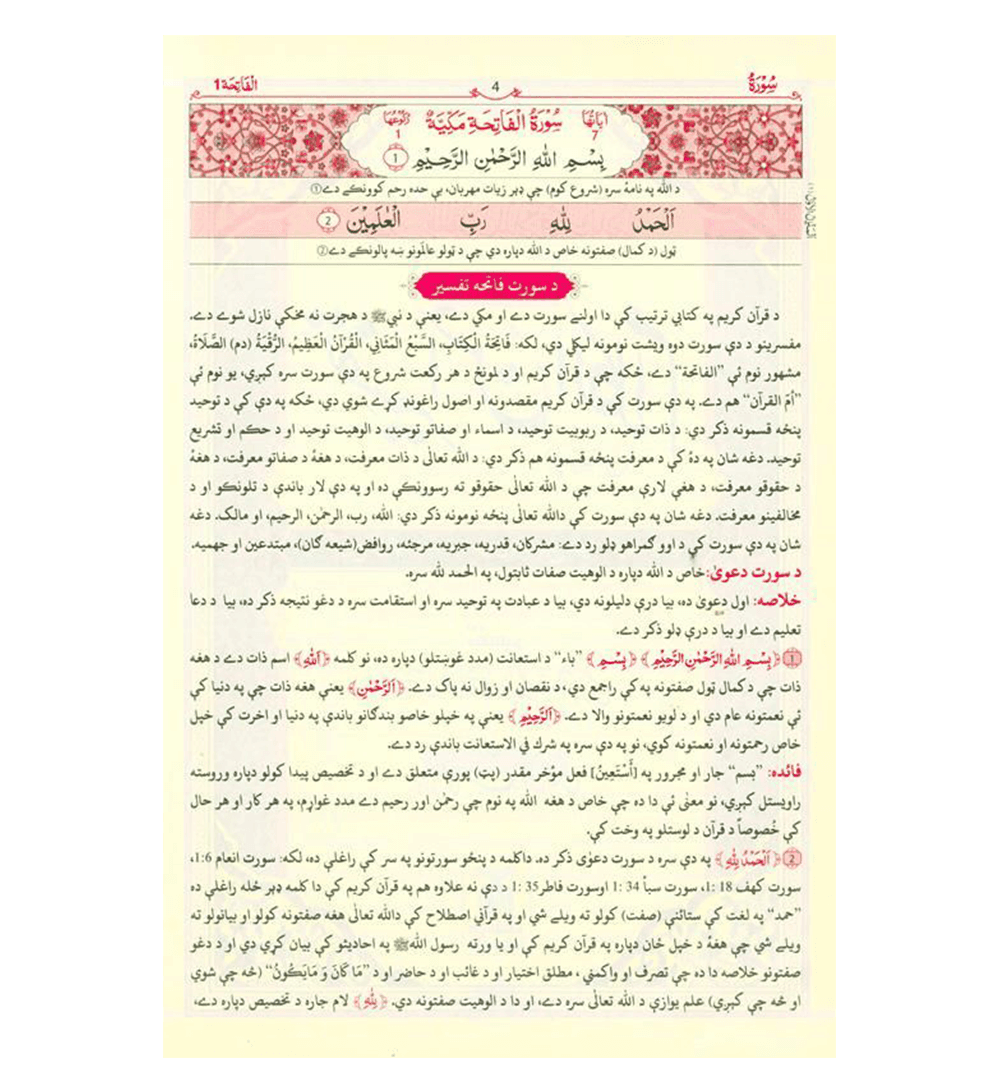 سُوْرَةُ 4 الْفَاتِحَة 1
اٰيَاتُهَا 7 سُوْرَةُ الْفَاتِحَةِ مَكِّيَّةٌ رُكُوْعُهَا 1
بِسْمِ اللهِ الرَّحْمٰنِ الرَّحِيْمِ 1
د الله په نامۀ سره (شروع كوم) چې ډېر زيات مهربان، بې حده رحم كوونكے دے①
اَلْحَمْدُ لِلّٰهِ رَبِّ الْعٰلَمِيْنَ 2
ټول (د كمال) صفتونه خاص د الله دپاره دي چې د ټولو عالمونو ښه پالونكے دے②
د سورت فاتحه تفسير
د قرآن كريم په كتابي ترتيب كې دا اولنے سورت دے او مكي دے، يعنې د نبيﷺ د هجرت نه مخكې نازل شوے دے.
مفسرينو د دې سورت دوه ويشت نومونه ليكلي دي، لكه: فَاتِحَةُ الْكِتَابِ، السَّبْعُ الْمَثَانِي، الْقُرْآنُ الْعَظِيْمُ، الرُّقْيَةُ (دم) الصَّلَاةُ،
مشهور نوم ئې ”الفاتحة“ دے، ځكه چې د قرآن كريم او د لمونځ د هر ركعت شروع په دې سورت سره كېږي، يو نوم ئې
”اُمّ القرآن“ هم دے. په دې سورت كې د قرآن كريم مقصدونه او اصول راغونډ كړے شوي دي، ځكه په دې كې د توحيد
پنځه قسمونه ذكر دي: د ذات توحيد، د ربوبيت توحيد، د اسماء او صفاتو توحيد، د الوهيت توحيد او د حكم او تشريع
توحيد. دغه شان په دۀ كې د معرفت پنځه قسمونه هم ذكر دي: د الله تعالٰى د ذات معرفت، د هغۀ د صفاتو معرفت، د هغۀ
د حقوقو معرفت، د هغې لارې معرفت چې د الله تعالٰى حقوقو ته رسوونكې ده او په دې لار باندې د تلونكو او د
مخالفينو معرفت. دغه شان په دې سورت كې دالله تعالٰى پنځه نومونه ذكر دي: الله، رب، الرحمٰن، الرحيم، او مالك. دغه
شان په دې سورت كې د اوو ګمراهو ډلو رد دے: مشركان، قدريه، جبريه، مرجئه، روافض(شيعه ګان)، مبتدعين او جهميه.
د سورت دعوىٰ: خاص د الله دپاره د الوهيت صفات ثابتول، په الحمد لله سره.
خلاصه: اول دعوىٰ ده، بيا درې دليلونه دي، بيا د عبادت په توحيد سره او استقامت سره د دغو نتيجه ذكر ده، بيا د دعا
تعليم دے او بيا د درې ډلو ذكر دے.
1 ﴿بِسْمِ اللهِ الرَّحْمٰنِ الرَّحِيْمِ﴾ ﴿بِسْمِ﴾ ”باء“ د استعانت (مدد غوښتلو) دپاره ده، نو كلمه ﴿اَللهِ﴾ اسم ذات دے د هغه
ذات چې د كمال ټول صفتونه په كې راجمع دي، د نقصان او زوال نه پاك دے. ﴿اَلرَّحْمٰنِ﴾ يعنې هغه ذات چې په دنيا كې
ئې نعمتونه عام دي او د لويو نعمتونو والا دے. ﴿اَلرَّحِيْمِ﴾ يعنې په خپلو خاصو بندګانو باندې په دنيا او اخرت كې خپل
خاص رحمتونه او نعمتونه كوي، نو په دې سره په شرك في الاستعانت باندې رد دے.
فائده: ”بسم“ جار او مجرور په [أَسْتَعِينُ] فعل مؤخر مقدر (پټ) پورې متعلق دے او د تخصيص پيدا كولو دپاره وروسته
راويستل كېږي، نو معنٰى ئې دا ده چې خاص د هغه الله په نوم چې رحمٰن اور رحيم دے مدد غواړم، په هر كار او هر حال
كې خُصوصاً د قرآن د لوستلو په وخت كې.
2 ﴿اَلْحَمْدُ لِلّٰهِ﴾ په دې سره د سورت دعوٰى ذكر ده. داكلمه د پنځو سورتونو په سر كې راغلې ده، لكه: سورت انعام 1:6،
سورت كهف 18 :1، سورت سبأ 34 :1 اوسورت فاطر35 :1 د دې نه علاوه هم په قرآن كريم كې دا كلمه ډېر ځله راغلې ده
”حمد“ په لغت كې ستائنې (صفت) كولو ته ويلے شي او په قرآني اصطلاح كې دالله تعالٰى هغه صفتونه كولو او بيانولو ته
ويلے شي چې هغۀ د خپل ځان دپاره په قرآن كريم كې او يا ورته رسول اللهﷺ په احاديثو كې بيان كړي دي او د دغو
صفتونو خلاصه دا ده چې تصرف او واكمني ، مطلق اختيار او د غائب او د حاضر او د ”مَا كَانَ وَ مَايَكُونُ“ (څه چې شوي
او څه چې كېږي) علم يوازې د الله تعالٰى سره دے، او دا د الوهيت صفتونه دي. ﴿لِلّٰهِ﴾ لام جاره د تخصيص دپاره دے،